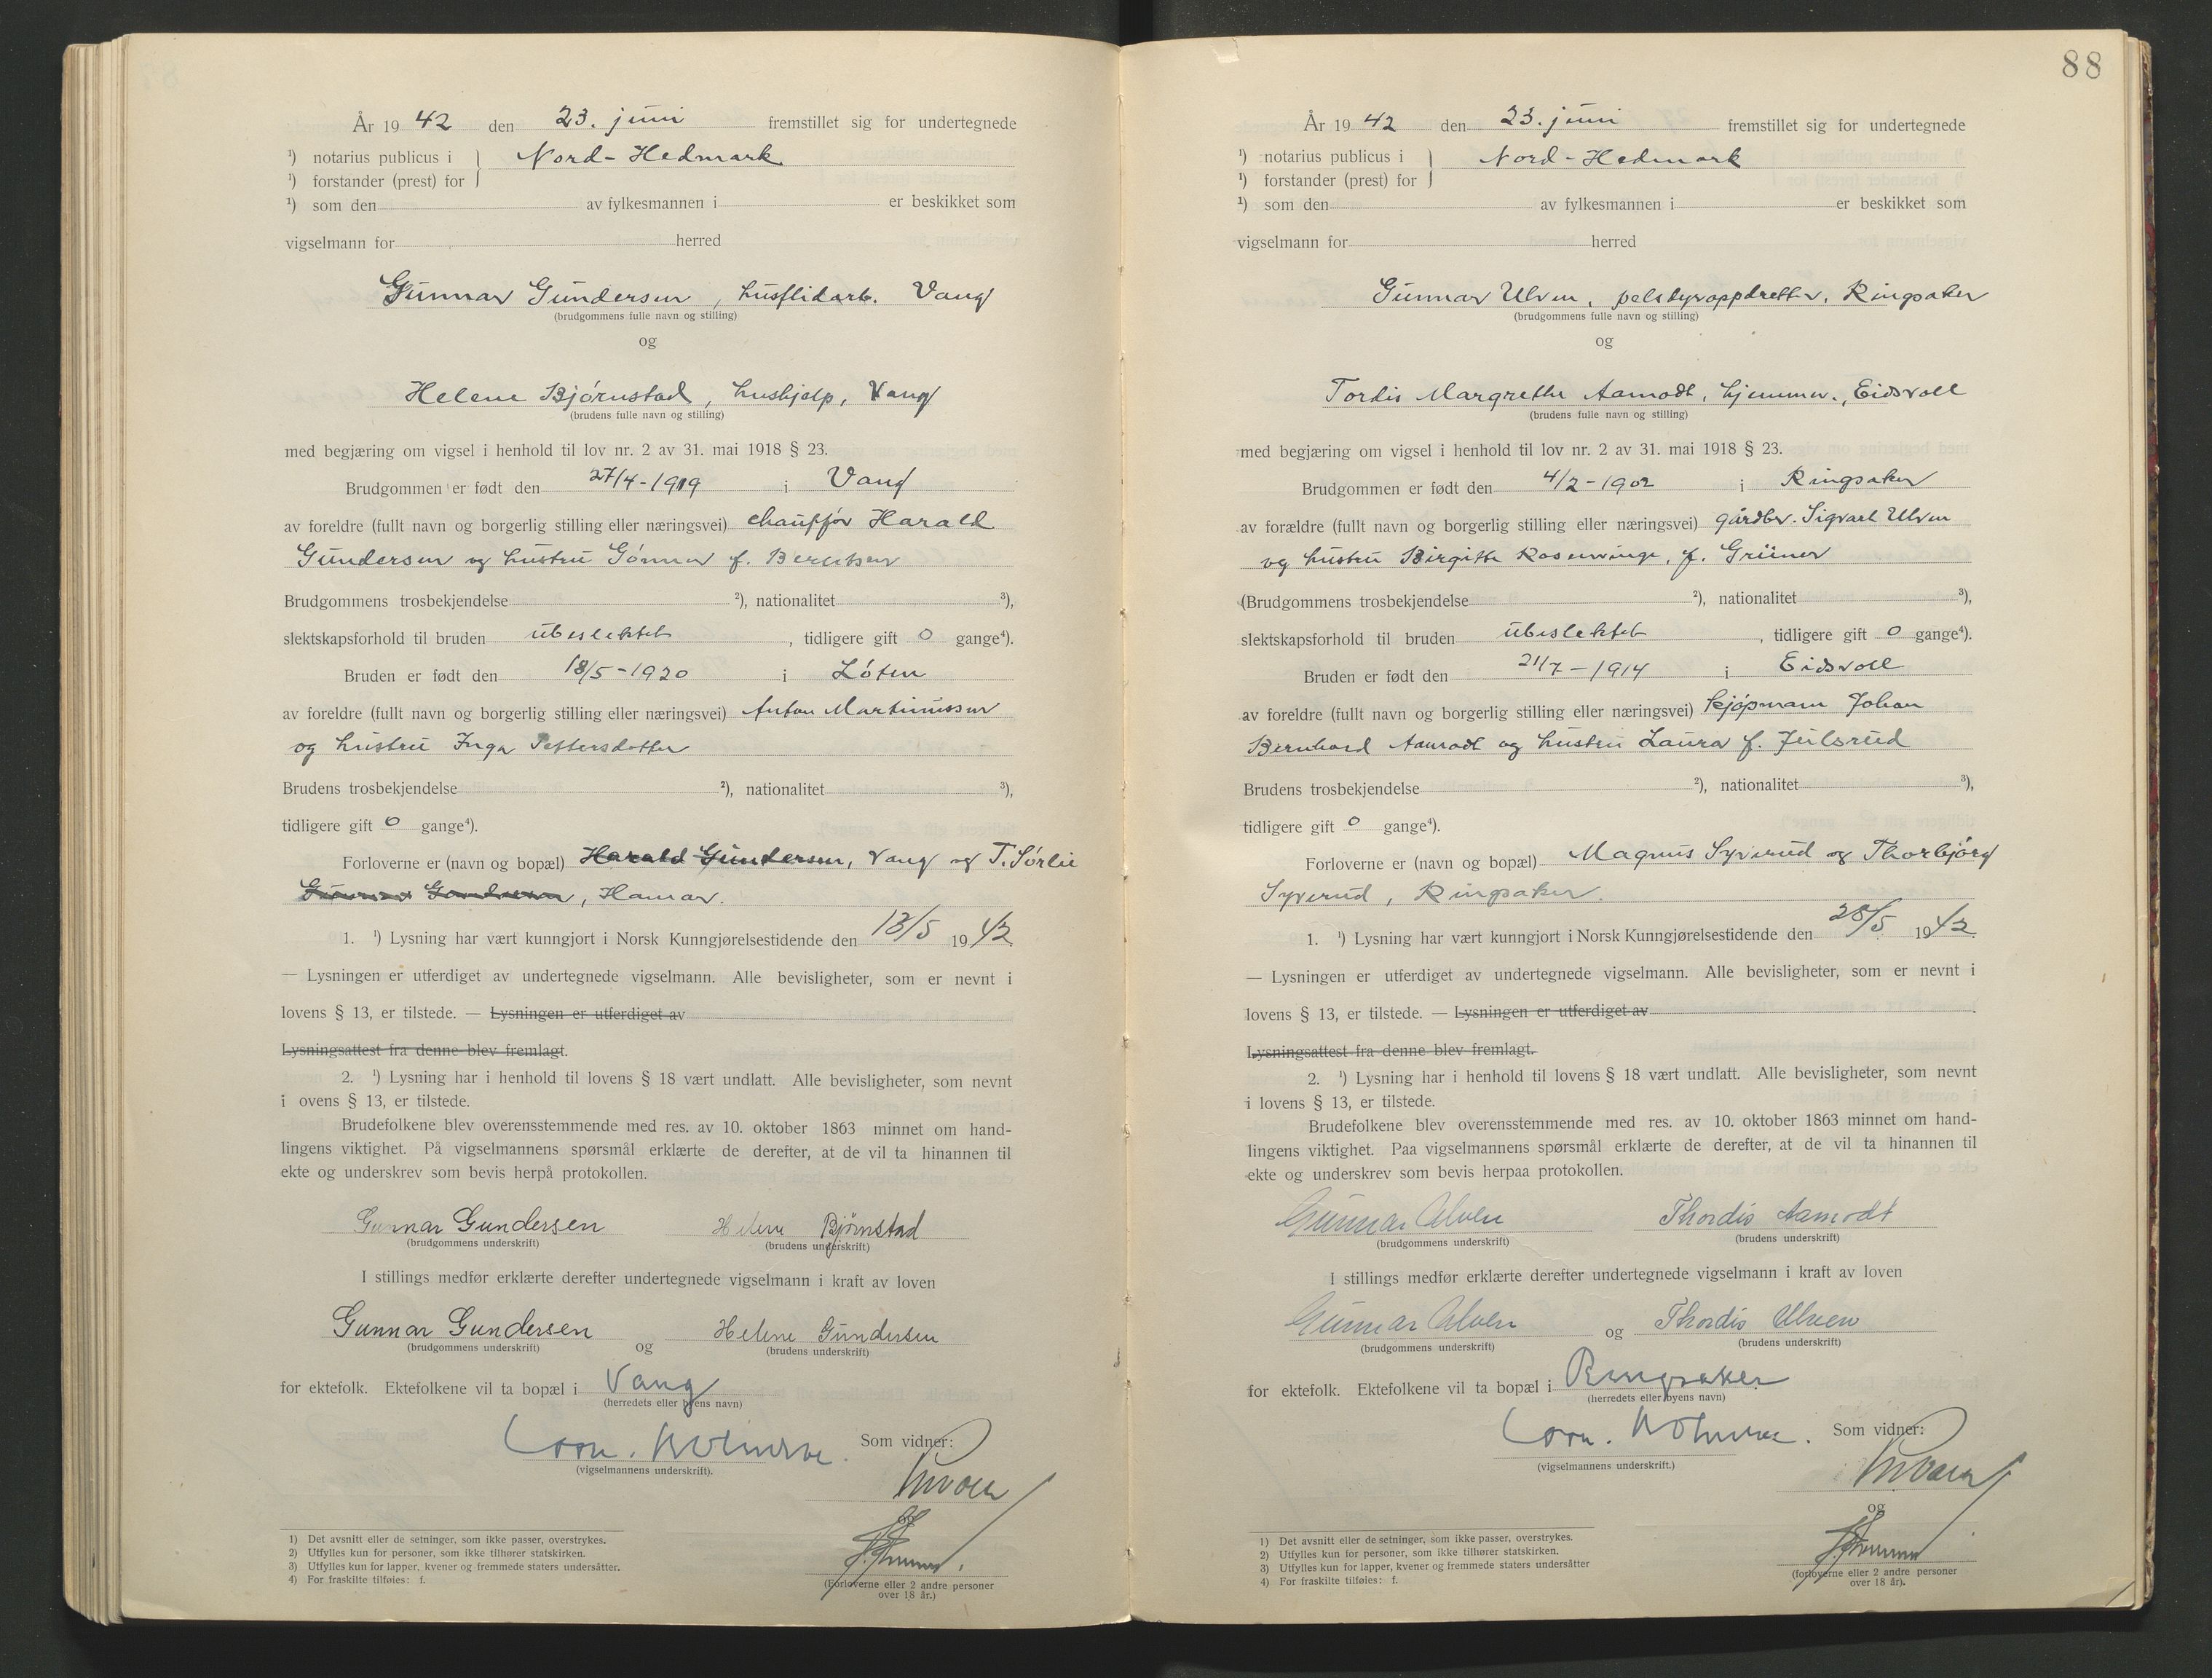 År 19 42 den 23. juni fremstillet sig for undertegnede
¹) notarius publicus i } Nord-Hedmark
¹) forstander (prest) for
¹) som den av fylkesmannen i er beskikket som
vigselmann for herred
Gunnar Gundersen, husflidarb. Vang
(brudgommens fulle navn og stilling)
og
Helene Bjørnstad, hushjelp, Vang
(brudens fulle navn og stilling)
med begjæring om vigsel i henhold til lov nr. 2 av 31. mai 1918 § 23.
Brudgommen er født den 27/4-1919 i Vang
av foreldre (fullt navn og borgerlig stilling eller næringsvei) chauffør Harald
Gundersen og hustru Gunnor f. Berntsen
Brudgommens trosbekjendelse ²), nationalitet ³),
slektskapsforhold til bruden ubeslektet, tidligere gift 0 gange⁴).
Bruden er født den 18/5-1920 i Løten
av foreldre (fullt navn og borgerlig stilling eller næringsvei) Anton Martinussen
og hustru Inga Pettersdotter
Brudens trosbekjendelse ²), nationalitet ³),
tidligere gift 0 gange⁴).
Forloverne er (navn og bopæl) Harald Gundersen, Vang og T. Sørlie
Gunnar Gundersen, Hamar.
1. ¹) Lysning har vært kunngjort i Norsk Kunngjørelsestidende den 13/5 19 42
— Lysningen er utferdiget av undertegnede vigselmann. Alle bevisligheter, som er nevnt i
lovens § 13, er tilstede. — Lysningen er utferdiget av
Lysningsattest fra denne blev fremlagt.
2. ¹) Lysning har i henhold til lovens § 18 vært undlatt. Alle bevisligheter, som nevnt
i ovens § 13, er tilstede.
Brudefolkene blev overensstemmende med res. av 10. oktober 1863 minnet om hand-
lingens viktighet. På vigselmannens spørsmål erklærte de derefter, at de vil ta hinannen til
ekte og underskrev som bevis herpå protokollen.
Gunnar Gundersen Helene Bjørnstad
(brudgommens underskrift) (brudens underskrift)
I stillings medfør erklærte derefter undertegnede vigselmann i kraft av loven
Gunnar Gundersen og Helene Gundersen
(brudgommens underskrift) (brudens underskrift)
for ektefolk. Ektefolkene vil ta bopæl i Vang
(herredets eller byens navn)
Som vidner:
(vigselmannens underskrift).
og
(Forloverne eller 2 andre personer
over 18 år.)
1) Det avsnitt eller de setninger, som ikke passer, overstrykes.
2) Utfylles kun for personer, som ikke tilhører statskirken.
3) Utfylles kun for lapper, kvener og fremmede staters undersåtter.
4) For fraskilte tilføies: f.
88
År 19 42 den 23. juni fremstillet sig for undertegnede
¹) notarius publicus i } Nord-Hedmark
¹) forstander (prest) for
¹) som den av fylkesmannen i er beskikket som
vigselmann for herred
Gunnar Ulven, pelsdyroppdretter, Ringsaker
(brudgommens fulle navn og stilling)
og
Tordis Margrethe Aamodt, hjemmev., Eidsvoll
(brudens fulle navn og stilling)
med begjæring om vigsel i henhold til lov nr. 2 av 31. mai 1918 § 23.
Brudgommen er født den 4/2-1902 i Ringsaker
av forældre (fullt navn og borgerlig stilling eller næringsvei) gårdbr. Sigvart Ulven
og hustru Birgitte Rosenvinge, f. Grüner
(Brudgommens trosbekjendelse ²), nationalitet ³),
slektskapsforhold til bruden ubeslektet, tidligere gift 0 gange⁴).
Bruden er født den 21/7-1914 i Eidsvoll
av foreldre (fullt navn og borgerlig stilling eller næringsvei) kjøpmann Johan
Bernhard Aamodt og hustru Laura f. Julsrud
Brudens trosbekjendelse ²), nationalitet ³),
tidligere gift 0 gange⁴).
Forloverne er (navn og bopæl) Magnus Syverud og Thorbjørg
Syverud, Ringsaker.
1. ¹) Lysning har vært kunngjort i Norsk Kunngjørelsestidende den 28/5 19 42
— Lysningen er utferdiget av undertegnede vigselmann. Alle bevisligheter, som er nevnt i
lovens § 13, er tilstede. — Lysningen er utferdiget av
Lysningsattest fra denne blev fremlagt.
2. ¹) Lysning har i henhold til lovens § 18 vært undlatt. Alle bevisligheter, som nevnt
i lovens § 13, er tilstede.
Brudefolkene blev overensstemmende med res. av 10. oktober 1863 minnet om hand-
lingens viktighet. Paa vigselmannens spørsmål erklærte de derefter, at de vil ta hinannen til
ekte og underskrev som bevis herpaa protokollen.
Gunnar Ulven Thordis Aamodt
(brudgommens underskrift) (brudens underskrift)
I stillings medfør erklærte derefter undertegnede vigselmann i kraft av loven
Gunnar Ulven og Thordis Ulven
(brudgommens underskrift) (brudens underskrift)
for ektefolk. Ektefolkene vil ta bopæl i Ringsaker
(herredets eller byens navn)
Som vidner:
(vigselmannens underskrift.)
og
(forloverne eller 2 andre personer
over 18 år).
1) Det avsnitt eller de setninger, som ikke passer, overstrykes.
2) Utfylles kun for personer, som ikke tilhører statskirken.
3) Utfylles kun for lapper, kvener og fremmede staters undersåtter
4) For fraskilte tilføies: f.